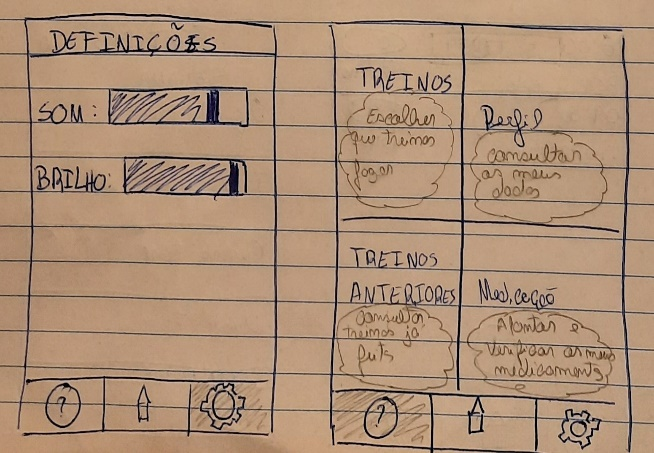 DEFINIÇÕES
SOM:
BRILHO:
?
TREINOS
Escolher
que treinos
fazer
Perfil
consultar
os meus
dados
TREINOS
ANTERIORES
consultar
treinos já
feits
Medicação
Apontar e
verificar os meus
medicaments
?